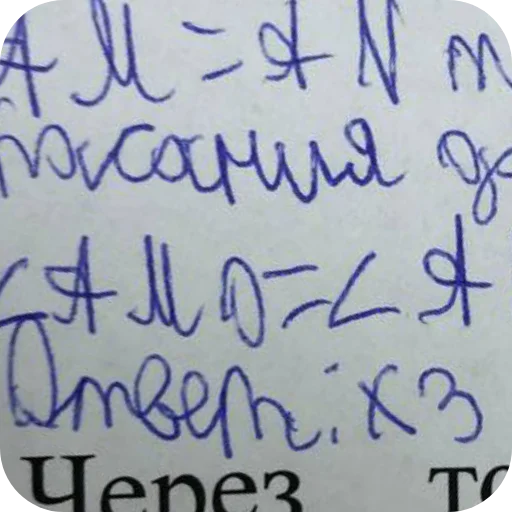 AM = AN
касания
<AMO = < A
Ответ: х3
Через